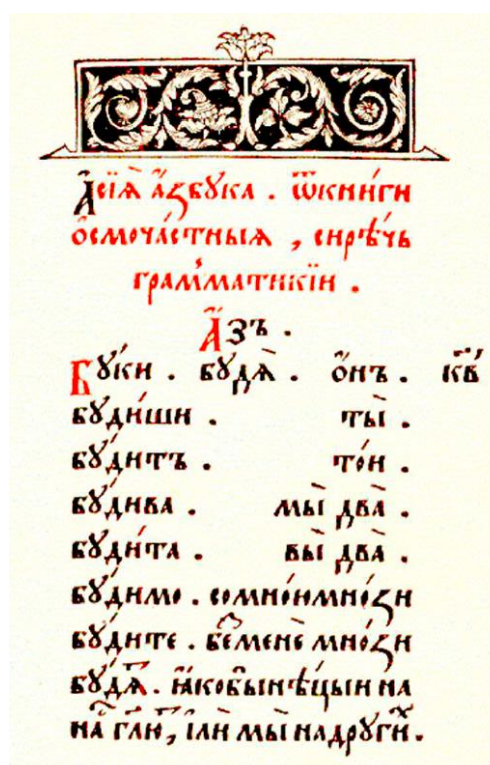 А҆сїѧ̀ а҆́збꙋка . ѿкни́ги
ѻ҆смоча́стныѧ , сирѣ́чь
грамма́тикїи .
А҆́зъ .
Бꙋ́ки . бꙋдѧ̀ . ѻ҆́нъ . кв҃
бꙋди́ши . ты̀ .
бꙋди́тъ . то́и .
бꙋди́ва . мы̀ два̀ .
бꙋди́та . вы̀ два̀ .
бꙋди́мо . сомно́имно́ѕи
бꙋди́те . без̾менѐ мно́ѕи
бꙋдѧ́т . ꙗ҆́кобынѣ́цыи на
на̀ гл҃ю , і҆лѝ мы̀ надрꙋги́х .